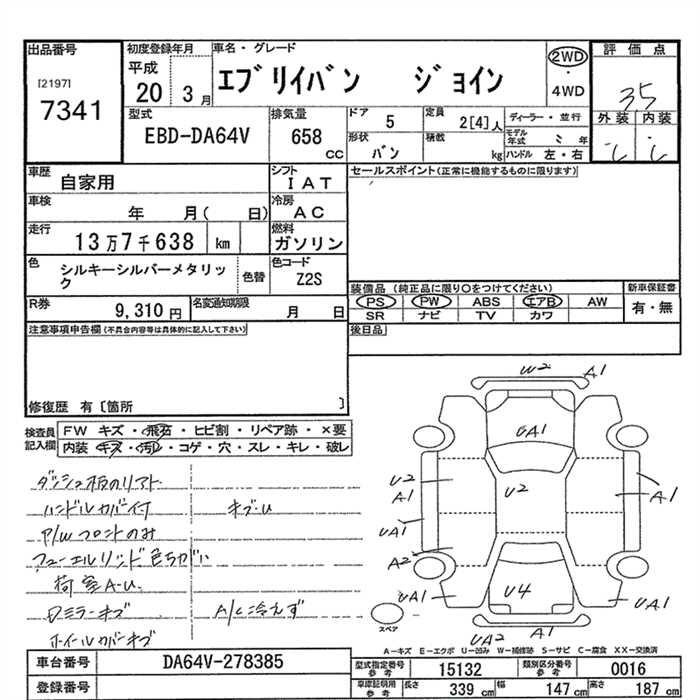 出品番号
[2197]
7341
初度登録年月
平成
20 3月
車名・グレード
エブリイバン ジョイン
2WD
・
4WD
評価点
35
外装 内装
型式
EBD-DA64V
排気量
658
cc
ドア 5
定員 2[4]人
形状 バン
積載 kg
ディーラー・並行
モデル年式 年
ハンドル 左・右
車歴
自家用
シフト
IAT
車検
年 月( 日)
冷房
AC
走行
13万7千638 km
燃料
ガソリン
色
シルキーシルバーメタリック
色替
色コード
Z2S
R券
9,310円
名変通知期限
月 日
セールスポイント(正常に機能するものに限ります)
装備品(純正品に限り○をつけてください)
新車保証書
PS PW ABS エアB AW
SR ナビ TV カワ
有・無
後日品
注意事項申告欄(不具合内容等は具体的に記入して下さい)
修復歴 有〔箇所 〕
検査員記入欄
FW キズ・飛石・ヒビ割・リペア跡・×要
内装 キズ・汚れ・コゲ・穴・スレ・キレ・破レ
ハンドルカバー付
キズ・U
P/Wフロントのみ
フューエルリッド色ちがい
荷室A・U
Dミラーキズ
A/C冷えず
ホイールカバーキズ
W2
A1
UA1
U2
A1
U2
A1
UA1
A2
UA1
U4
UA1
UA2
A1
スペア
A-キズ E-エクボ U-凹み W-補修跡 S-サビ C-腐食 XX-交換済
車台番号
DA64V-278385
登録番号
型式指定番号 参考
15132
類別区分番号 参考
0016
車庫証明用 参考
長さ 339 cm
幅 147 cm
高さ 187 cm